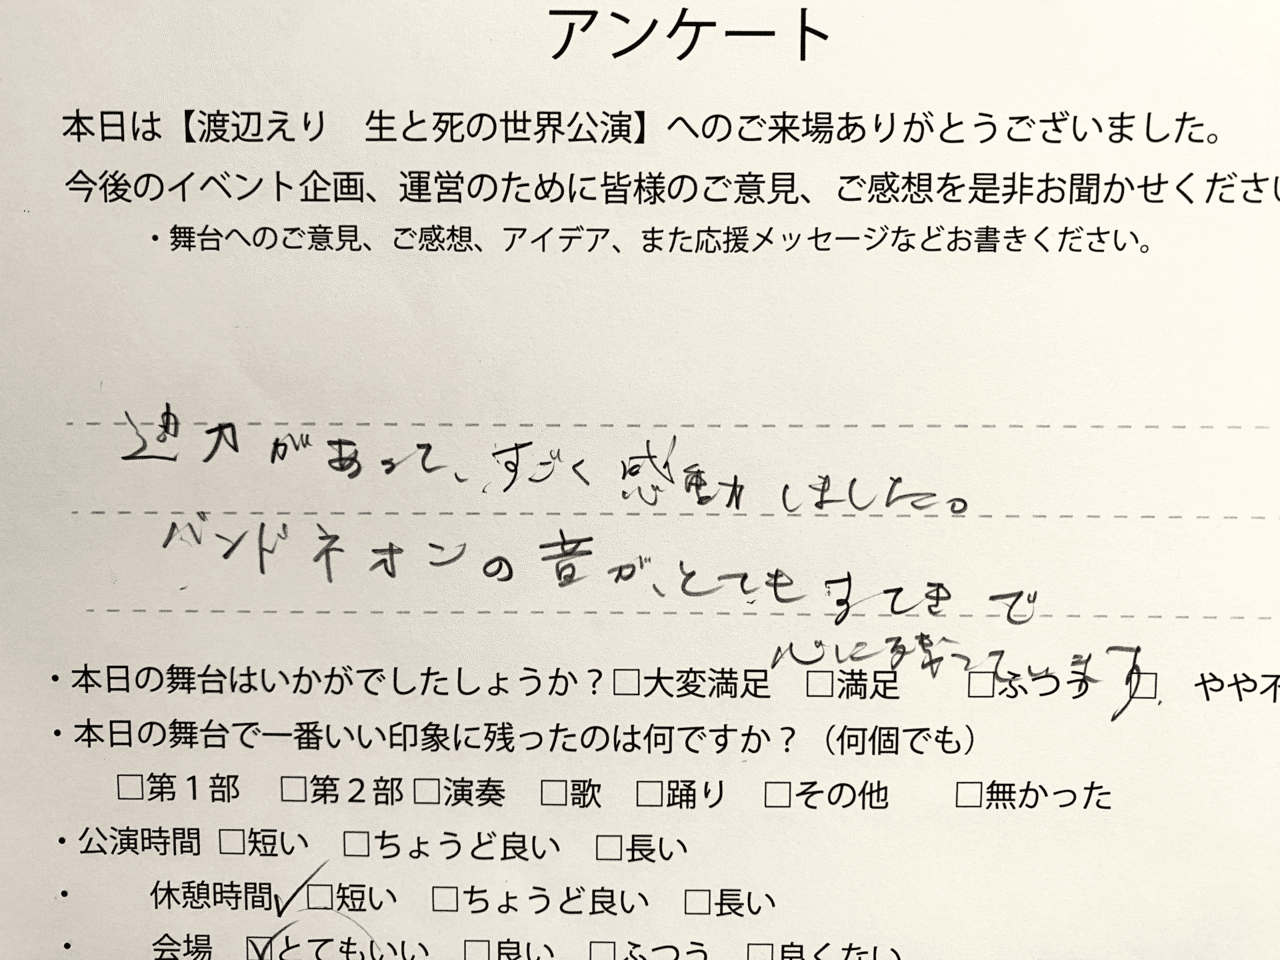 アンケート
本日は【渡辺えり　生と死の世界公演】へのご来場ありがとうございました。
今後のイベント企画、運営のために皆様のご意見、ご感想を是非お聞かせくださ
・舞台へのご意見、ご感想、アイデア、また応援メッセージなどお書きください。
迫力があって、すごく感動しました。
バンドネオンの音が、とてもすてきで
心に残っています
・本日の舞台はいかがでしたしょうか？□大変満足　□満足　□ふつう　□　やや不
・本日の舞台で一番いい印象に残ったのは何ですか？（何個でも）
□第１部　□第２部 □演奏　□歌　□踊り　□その他　□無かった
・公演時間 □短い　□ちょうど良い　□長い
・　休憩時間✓□短い　□ちょうど良い　□長い
・　会場　☑とてもいい　□良い　□ふつう　□良くない